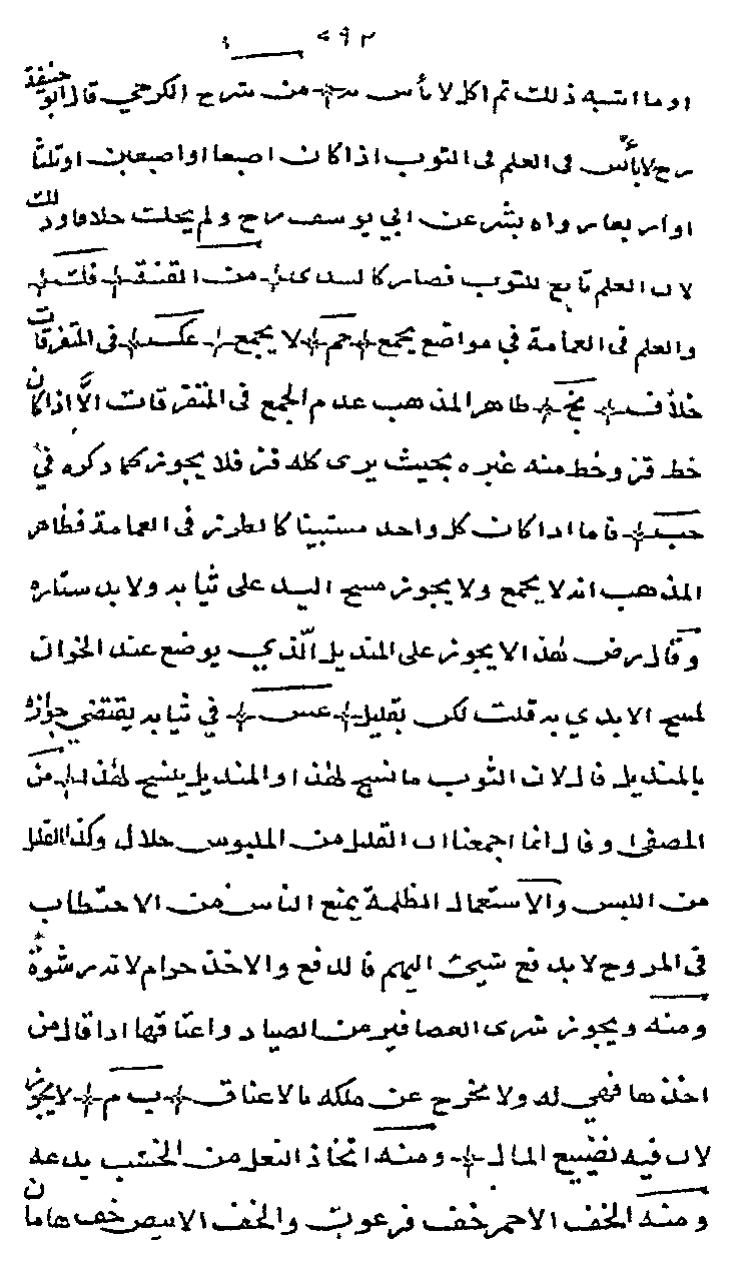 ٥٩٢
او ما اشبه ذلك ثم اكل لا بأس به من شرح الكرخي قال ابو حنيفة
رح لا بأس فى العلم فى الثوب اذا كان اصبعا او اصبعين او ثلثا
او اربعا رواه بشر عن ابي يوسف رح ولم يحك خلافا وذلك
لان العلم تابع للثوب فصار كالسدى من القنية قلت
والعلم فى العمامة في مواضع يجمع حم لا يجمع عك فى المتفرقات
خلاف نخ ظاهر المذهب عدم الجمع فى المتفرقات الّا اذا كان
خط قز وخط منه غيره بحيث يرى كله قز فلا يجوز كما ذكره في
حب فاما اذا كان كل واحد مستبينا كالطرز فى العمامة فظاهر
المذهب انه لا يجمع ولا يجوز مسح اليد على ثيابه ولا بدستاره
وقال رض فهذا لا يجوز على المنديل الّذي يوضع عند الخوان
لمسح الايدي به قلت لكن تعليل عس في ثيابه يقتضي جوازه
بالمنديل قال لان الثوب ما نسج لهذا والمنديل ينسج لهذا من
المصفى وقال انما اجمعنا ان القليل من الملبوس حلال وكذا القليل
من اللبس والاستعمال الظلمة يمنع الناس من الاحتطاب
فى المروج لا بدفع شيئ اليهم فالدفع والاخذ حرام لانه رشوة
ومنه ويجوز شرى العصافير من الصياد واعتاقها اذا قال من
اخذها فهي له ولا تخرج عن ملكه بالاعتاق ب م لا يجوز
لان فيه تضييع المال ومنه اتخاذ النعل من الخشب بدعة
ومنه الخف الاحمر خف فرعون والخف الابيض خف هامان